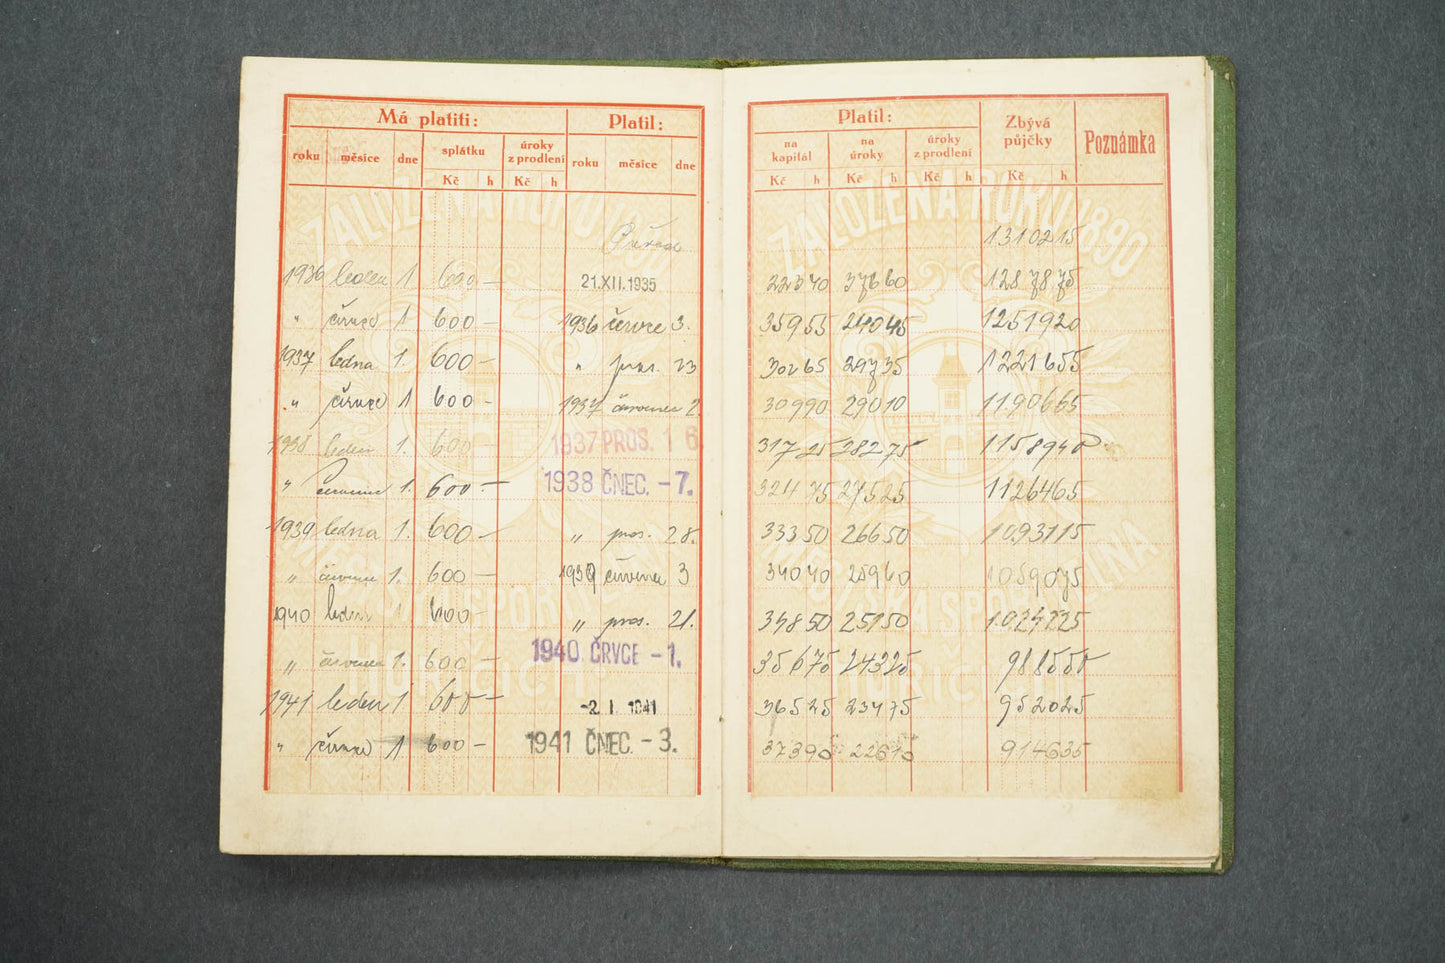 Má platiti: Platil:
roku měsíce dne splátku úroky z prodlení roku měsíce dne
Kč h Kč h
Převod
1936 leden 1 600 — 21.XII.1935
" červec 1 600 — 1936 červce 3.
1937 ledna 1. 600 — " pros. 23
" červec 1 600 — 1937 července 2.
1938 leden 1. 600 1937 PROS. 1 6.
" července 1. 600 — 1938 ČNEC. - 7.
1939 ledna 1. 600 — " pros. 28.
" července 1. 600 — 1939 července 3
1940 leden 1 600 — " pros. 21.
" července 1. 600 — 1940 ČRVCE - 1.
1941 leden 1 600 — -2. I. 1941
" červec 1 600 — 1941 ČNEC. - 3.
Platil: Zbývá půjčky Poznámka
na kapitál na úroky úroky z prodlení
Kč h Kč h Kč h Kč h
13102 15
223 40 376 60 12878 75
359 55 240 45 12519 20
302 65 297 35 12216 55
309 90 290 10 11906 65
317 25 282 75 11589 40
324 75 275 25 11264 65
333 50 266 50 10931 15
340 40 259 60 10590 75
348 50 251 50 10242 25
356 75 243 25 9885 50
365 25 234 75 9520 25
373 90 226 10 9146 35
ZALOŽENA ROKU 1890
MĚSTSKÁ SPOŘITELNA
ZALOŽENA ROKU 1890
MĚSTSKÁ SPOŘITELNA